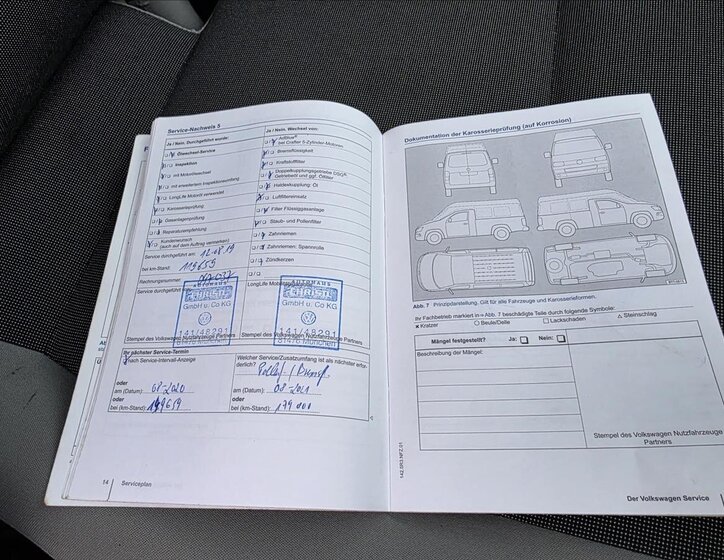 Service-Nachweis 5
Ja / Nein. Durchgeführt wurde:
Ölwechsel-Service
Inspektion
mit Motorölwechsel
mit erweitertem Inspektionsumfang
LongLife Motoröl verwendet
Karosserieprüfung
Gasanlagenprüfung
Reparaturempfehlung
Kundenwunsch
(auch auf dem Auftrag vermerken)
Service durchgeführt am: 12.08.19
bei km-Stand:
Rechnungsnummer:
Service durchgeführt
Ja / Nein. Wechsel von:
AdBlue®
bei Crafter 5-Zylinder-Motoren
Bremsflüssigkeit
Kraftstofffilter
Doppelkupplungsgetriebe DSG®
Getriebeöl und ggf. Ölfilter
Haldexkupplung: Öl
Luftfiltereinsatz
Filter Flüssiggasanlage
Staub- und Pollenfilter
Zahnriemen
Zahnriemen, Spannrolle
Zündkerzen
AUTOHAUS
GmbH u. Co KG
141/48291
81476 München
Stempel des Volkswagen Nutzfahrzeuge Partners
AUTOHAUS
GmbH u. Co KG
141/48291
81476 München
Stempel des Volkswagen Nutzfahrzeuge Partners
Ihr nächster Service-Termin
nach Service-Intervall-Anzeige
oder
am (Datum): 08.2020
oder
bei (km-Stand):
Welcher Service/Zusatzumfang ist als nächster erfor-
derlich?
oder
am (Datum): 08.2021
oder
bei (km-Stand): 179 000
14 Serviceplan
Dokumentation der Karosserieprüfung (auf Korrosion)
Abb. 7 Prinzipdarstellung. Gilt für alle Fahrzeuge und Karosserieformen.
Ihr Fachbetrieb markiert in ⇒ Abb. 7 beschädigte Teile durch folgende Symbole:
× Kratzer ○ Beule/Delle □ Lackschaden △ Steinschlag
Mängel festgestellt? Ja: Nein:
Beschreibung der Mängel:
Stempel des Volkswagen Nutzfahrzeuge
Partners
142.5R3.NFZ.01
Der Volkswagen Service